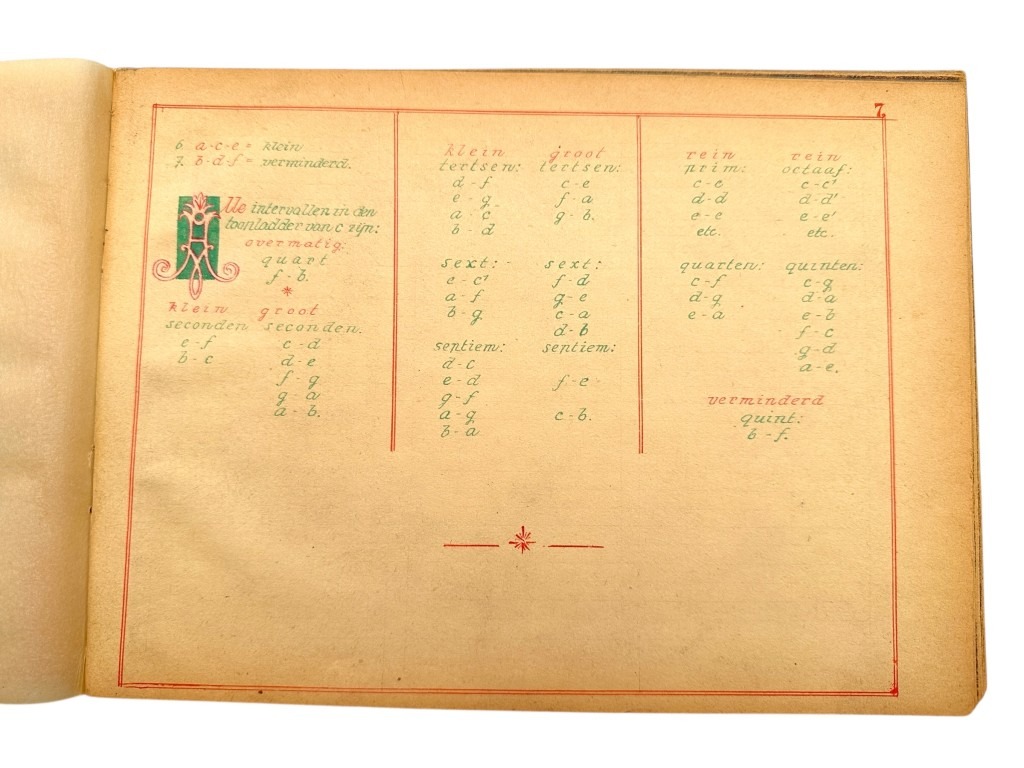 7.
6. a-c-e = klein
7. b-d-f = verminderd.
Alle intervallen in den
toonladder van c zijn:
overmatig:
quart
f-b.
*
klein groot
seconden seconden.
e-f c-d
b-c d-e
f-g
g-a
a-b.
klein groot
tertsen: tertsen:
d-f c-e
e-g f-a
a-c g-b.
b-d
sext: sext:
e-c' f-d
a-f g-e
b-g c-a
d-b
septiem: septiem:
d-c
e-d f-e
g-f
a-g c-b.
b-a
rein rein
prim: octaaf:
c-c c-c'
d-d d-d'
e-e e-e'
etc. etc.
quarten: quinten:
c-f c-g
d-g d-a
e-a e-b
f-c
g-d
a-e.
verminderd
quint:
b-f.